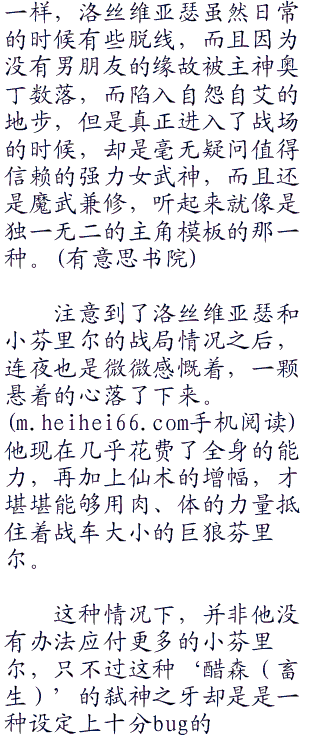 一样，洛丝维亚瑟虽然日常
的时候有些脱线，而且因为
没有男朋友的缘故被主神奥
丁数落，而陷入自怨自艾的
地步，但是真正进入了战场
的时候，却是毫无疑问值得
信赖的强力女武神，而且还
是魔武兼修，听起来就像是
独一无二的主角模板的那一
种。(有意思书院)
注意到了洛丝维亚瑟和
小芬里尔的战局情况之后，
连夜也是微微感慨着，一颗
悬着的心落了下来。
(m.heihei66.com手机阅读)
他现在几乎花费了全身的能
力，再加上仙术的增幅，才
堪堪能够用肉、体的力量抵
住着战车大小的巨狼芬里
尔。
这种情况下，并非他没
有办法应付更多的小芬里
尔，只不过这种‘醋森（畜
生）’的弑神之牙却是是一
种设定上十分bug的